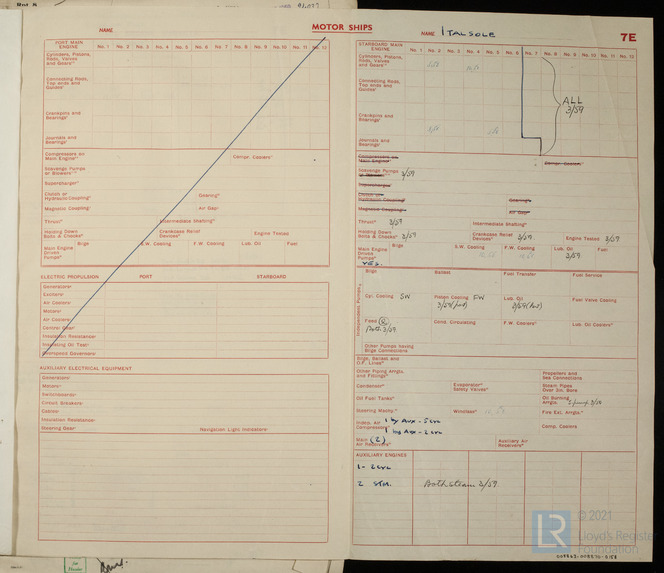 MOTOR SHIPS
NAME
NAME ITALSOLE
7E
PORT MAIN ENGINE
No. 1 No. 2 No. 3 No. 4 No. 5 No. 6 No. 7 No. 8 No. 9 No. 10 No. 11 No. 12
Cylinders, Pistons, Rods, Valves and Gears
Connecting Rods, Top ends and Guides
Crankpins and Bearings
Journals and Bearings
Compressors on Main Engine
Compr. Coolers
Scavenge Pumps or Blowers
Supercharger
Clutch or Hydraulic Coupling
Gearing
Magnetic Coupling
Air Gap
Thrust
Intermediate Shafting
Holding Down Bolts & Chocks
Crankcase Relief Devices
Engine Tested
Main Engine Driven Pumps
Bilge
S.W. Cooling
F.W. Cooling
Lub. Oil
Fuel
ELECTRIC PROPULSION
PORT
STARBOARD
Generators
Exciters
Air Coolers
Motors
Air Coolers
Control Gear
Insulation Resistance
Insulating Oil Test
Overspeed Governors
AUXILIARY ELECTRICAL EQUIPMENT
Generators
Motors
Switchboards
Circuit Breakers
Cables
Insulation Resistance
Steering Gear
Navigation Light Indicators
STARBOARD MAIN ENGINE
No. 1 No. 2 No. 3 No. 4 No. 5 No. 6 No. 7 No. 8 No. 9 No. 10 No. 11 No. 12
Cylinders, Pistons, Rods, Valves and Gears
Connecting Rods, Top ends and Guides
ALL
3/59
Crankpins and Bearings
Journals and Bearings
Compressors on Main Engine
Compr. Coolers
Scavenge Pumps 3/59
Supercharger
Clutch or Hydraulic Coupling
Gearing
Magnetic Coupling
Air Gap
Thrust 3/59
Intermediate Shafting
Holding Down Bolts & Chocks 3/59
Crankcase Relief Devices 3/59
Engine Tested 3/59
Main Engine Driven Pumps
YES.
Bilge
S.W. Cooling
F.W. Cooling
Lub. Oil 3/59
Fuel
Independent Pumps
Bilge
Ballast
Fuel Transfer
Fuel Service
Cyl. Cooling SW
Piston Cooling FW
Lub. Oil
Fuel Valve Cooling
Feed (2)
Both 3/59
Cond. Circulating
F.W. Coolers
Lub. Oil Coolers
Other Pumps having Bilge Connections
Bilge, Ballast and O.F. Lines
Other Piping Arrgts. and Fittings
Propellers and Sea Connections
Condenser
Evaporator Safety Valves
Steam Pipes Over 3in. Bore
Oil Fuel Tanks
Oil Burning Arrgts.
Steering Machy.
Windlass
Fire Ext. Arrgts.
Indep. Air Compressors
1 by Aux - 3 cyl
1 by Aux - 2 cyl
Comp. Coolers
Main (2) Air Receivers
Auxiliary Air Receivers
AUXILIARY ENGINES
1 - 2 cyl
2 STM. Both steam 3/59
© 2021
Lloyd's Register
Foundation